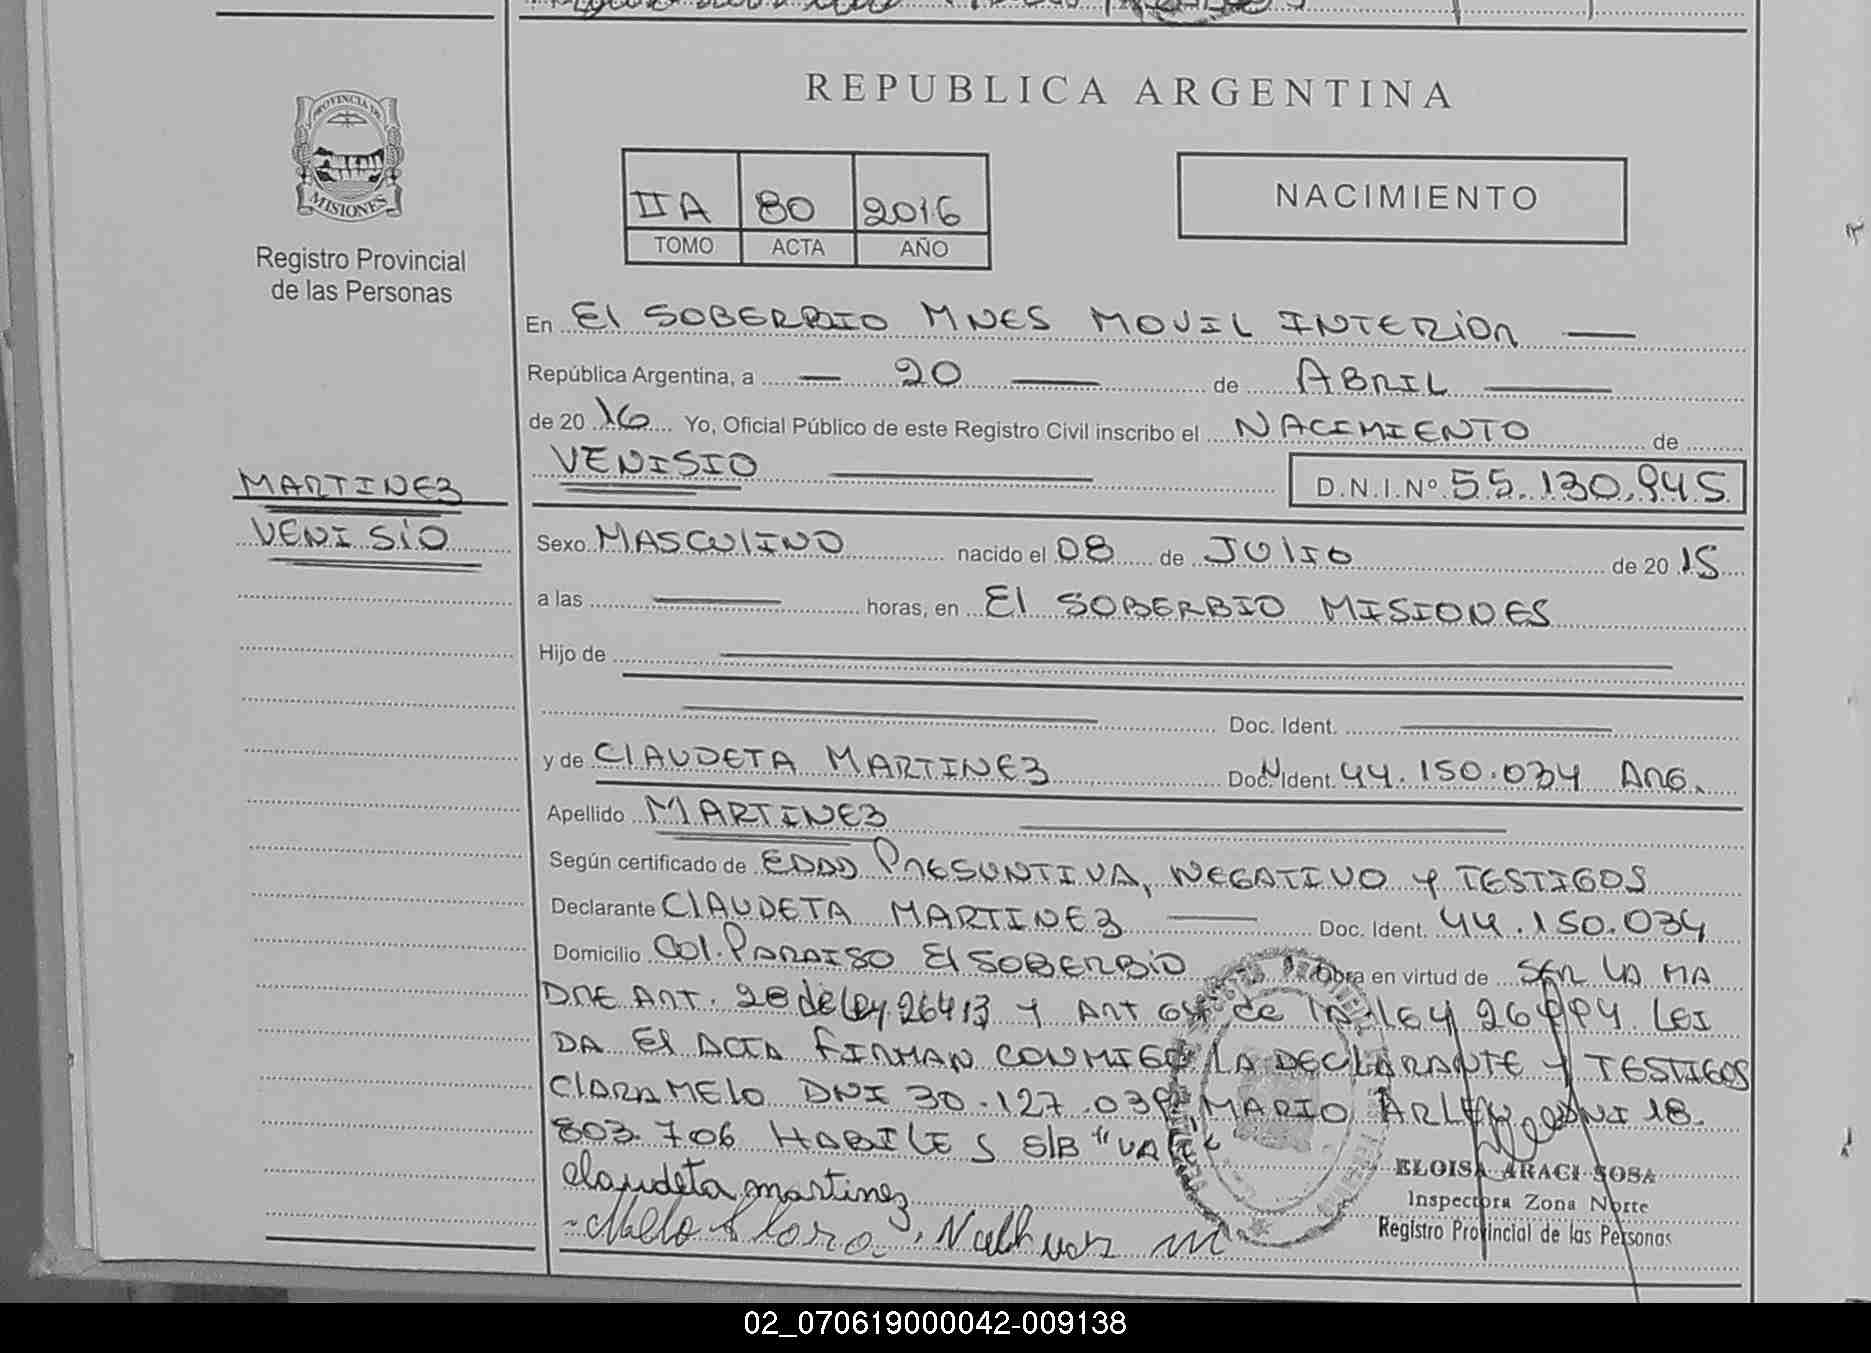 REPUBLICA ARGENTINA
PROVINCIA DE
MISIONES
Registro Provincial
de las Personas
IIA 80 2016
TOMO ACTA AÑO
NACIMIENTO
En El SOBERBIO MNES MOVIL INTERIOR
República Argentina, a 20 de ABRIL
de 2016 Yo, Oficial Público de este Registro Civil inscribo el NACIMIENTO de
VENISIO D.N.I.Nº 55.130.945
MARTINEZ
VENISIO
Sexo MASCULINO nacido el 08 de JULIO de 2015
a las horas, en El SOBERBIO MISIONES
Hijo de
Doc. Ident.
y de CLAUDETA MARTINEZ Doc. Ident. 44.150.034 ARG.
Apellido MARTINEZ
Según certificado de EDAD PRESUNTIVA, NEGATIVO Y TESTIGOS
Declarante CLAUDETA MARTINEZ Doc. Ident. 44.150.034
Domicilio COL. PARAISO El SOBERBIO Obra en virtud de SER LA MA
DRE ART. 28 de Ley 26413 Y ART 64 de la LEY 26994 LEI
DA El ACTA FIRMAN CONMIGO LA DECLARANTE Y TESTIGOS
CLARA MELO DNI 30.127.039, MARIO DNI 18.
803.706 HABILES S/B "VALE"
Claudeta martinez
Melo Clara
ELOISA ARACI SOSA
Inspectora Zona Norte
Registro Provincial de las Personas
02_070619000042-009138